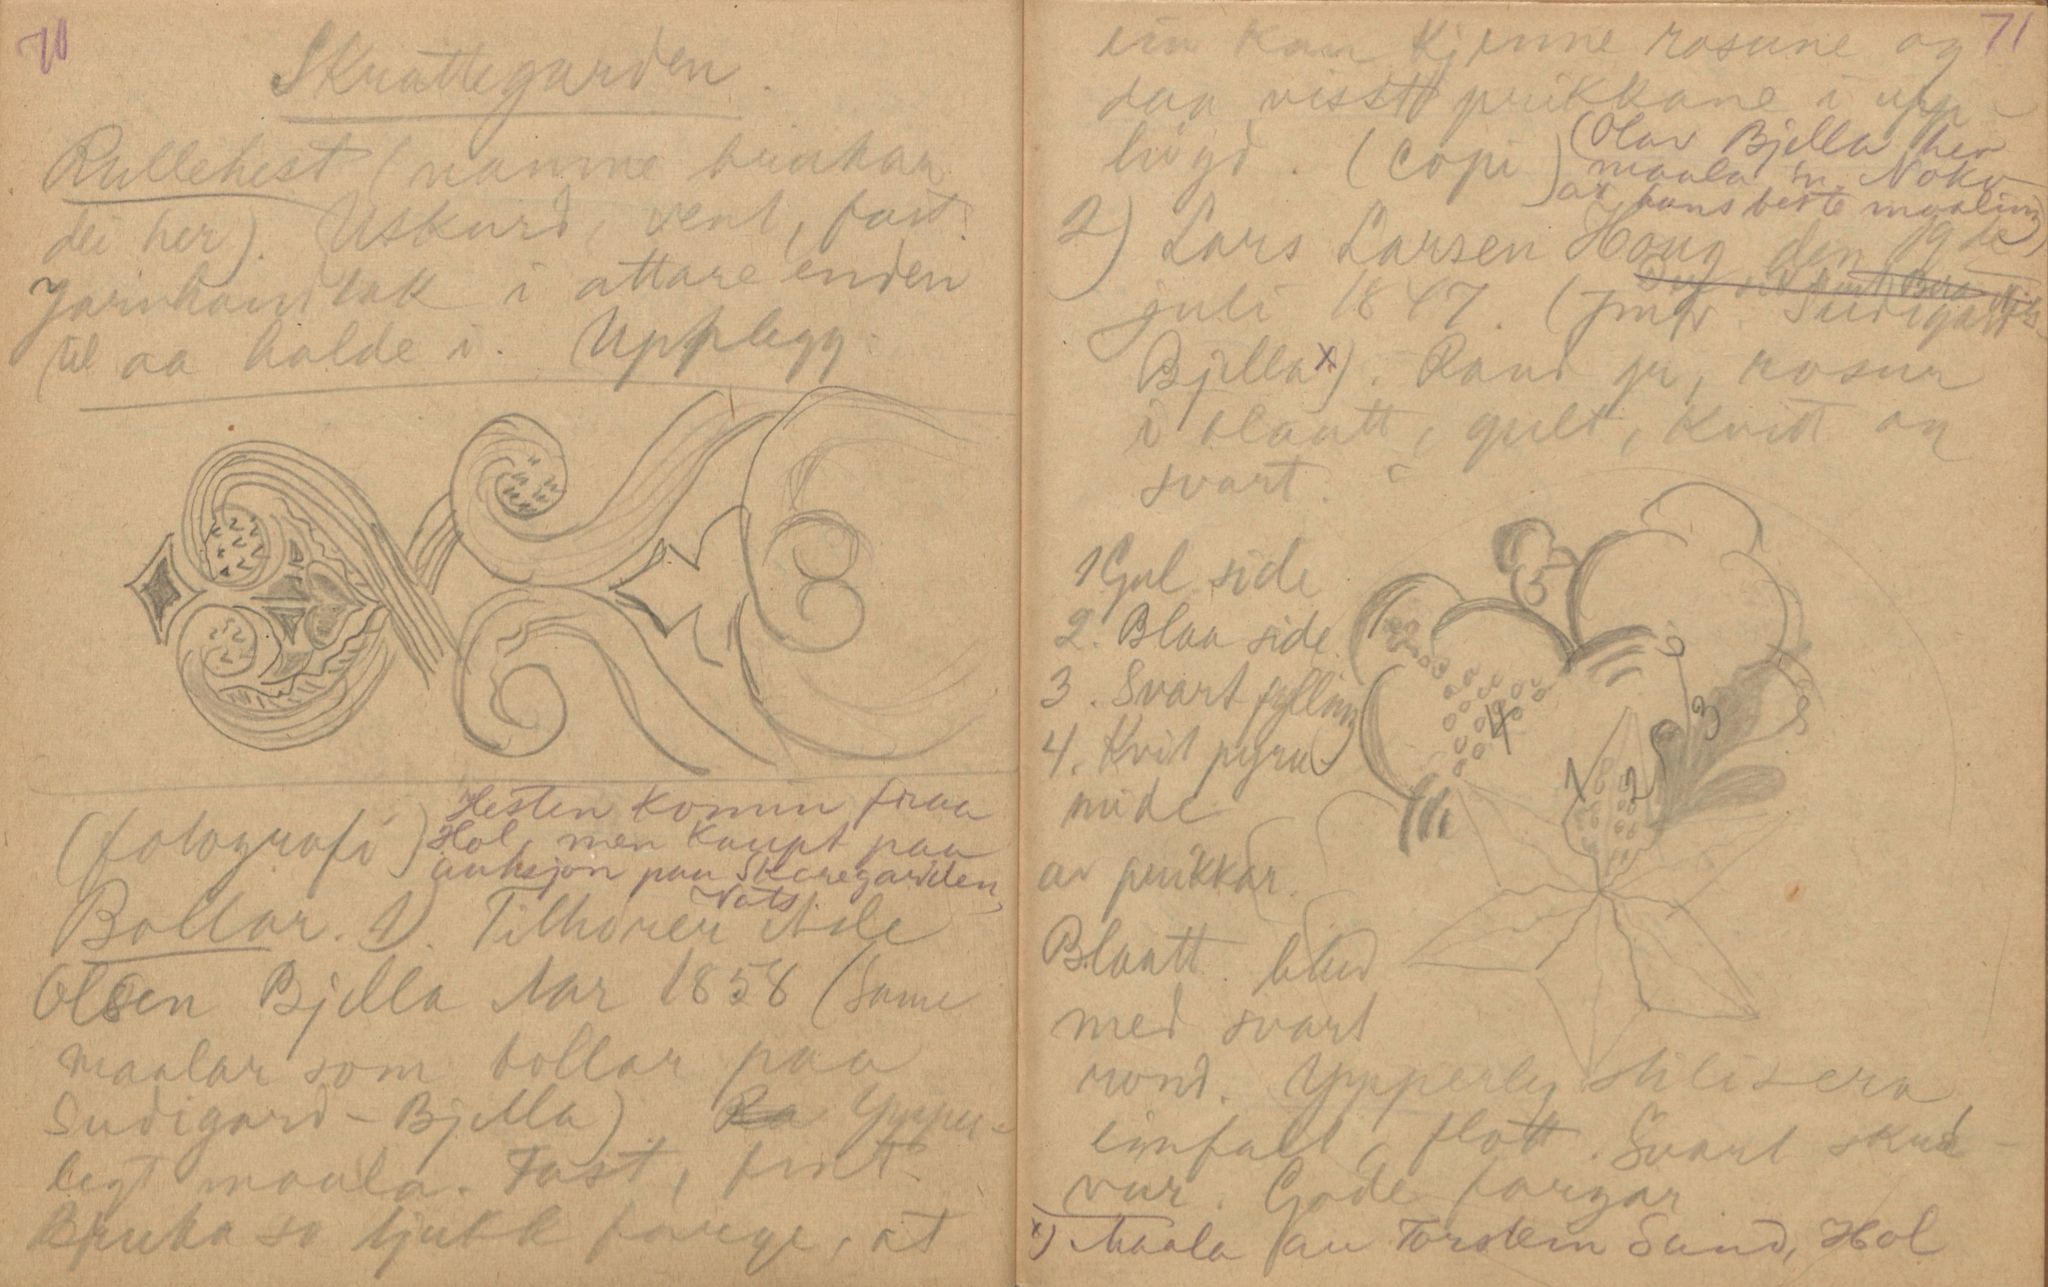 70
Skrattegarden.
Rullehest (namne brukar
dei her). Utskurd, vent, fast.
Jarnhandtak i attare enden
til aa halde i. Upplegg.
(fotografi)
Hesten komin fraa
Hol, men kaupt paa
auksjon paa Skaregarden,
Vats.
Bollar. 1). Tilhörer Asle
Olsen Bjella Aar 1858 (Same
maalar som bollar paa
Sudigard-Bjella). Ra Ypper-
legt maala. Fast, fint.
Bruka so tjukk farge, at
71
ein kan kjenne rosune og
daa visstt prikkane i upp-
högd. (Copi)
(Olav Bjella her
maala 'n. Noko
av hans beste maaling)
2) Lars Larsen Houg den 19de
juli 1847. (jmfr. Sudigard-
Bjella x). Raud gr, rosur
i blaatt, gult, kvitt og
svart.
1 Gul side
2. Blaa side
3. Svart fylling
4. Kvit pyra-
mide
av prikkar.
Blaatt blad
med svart
rond. Ypperleg stilisera
einfalt, flott. Svart skrad-
vur. Gode fargar
x) Maala av Torstein Sund, Hol
1
2
3
4